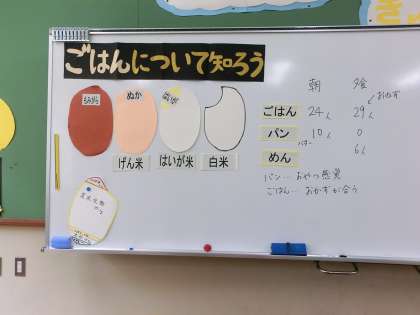 ごはんについて知ろう
もみがら
ぬか
はいが
げん米
はいが米
白米
朝
夕食
おかず
ごはん 24人 29人
パン 10人 0
めん 6人
パン…おやつ感覚
ごはん…おかずが合う
炭水化物